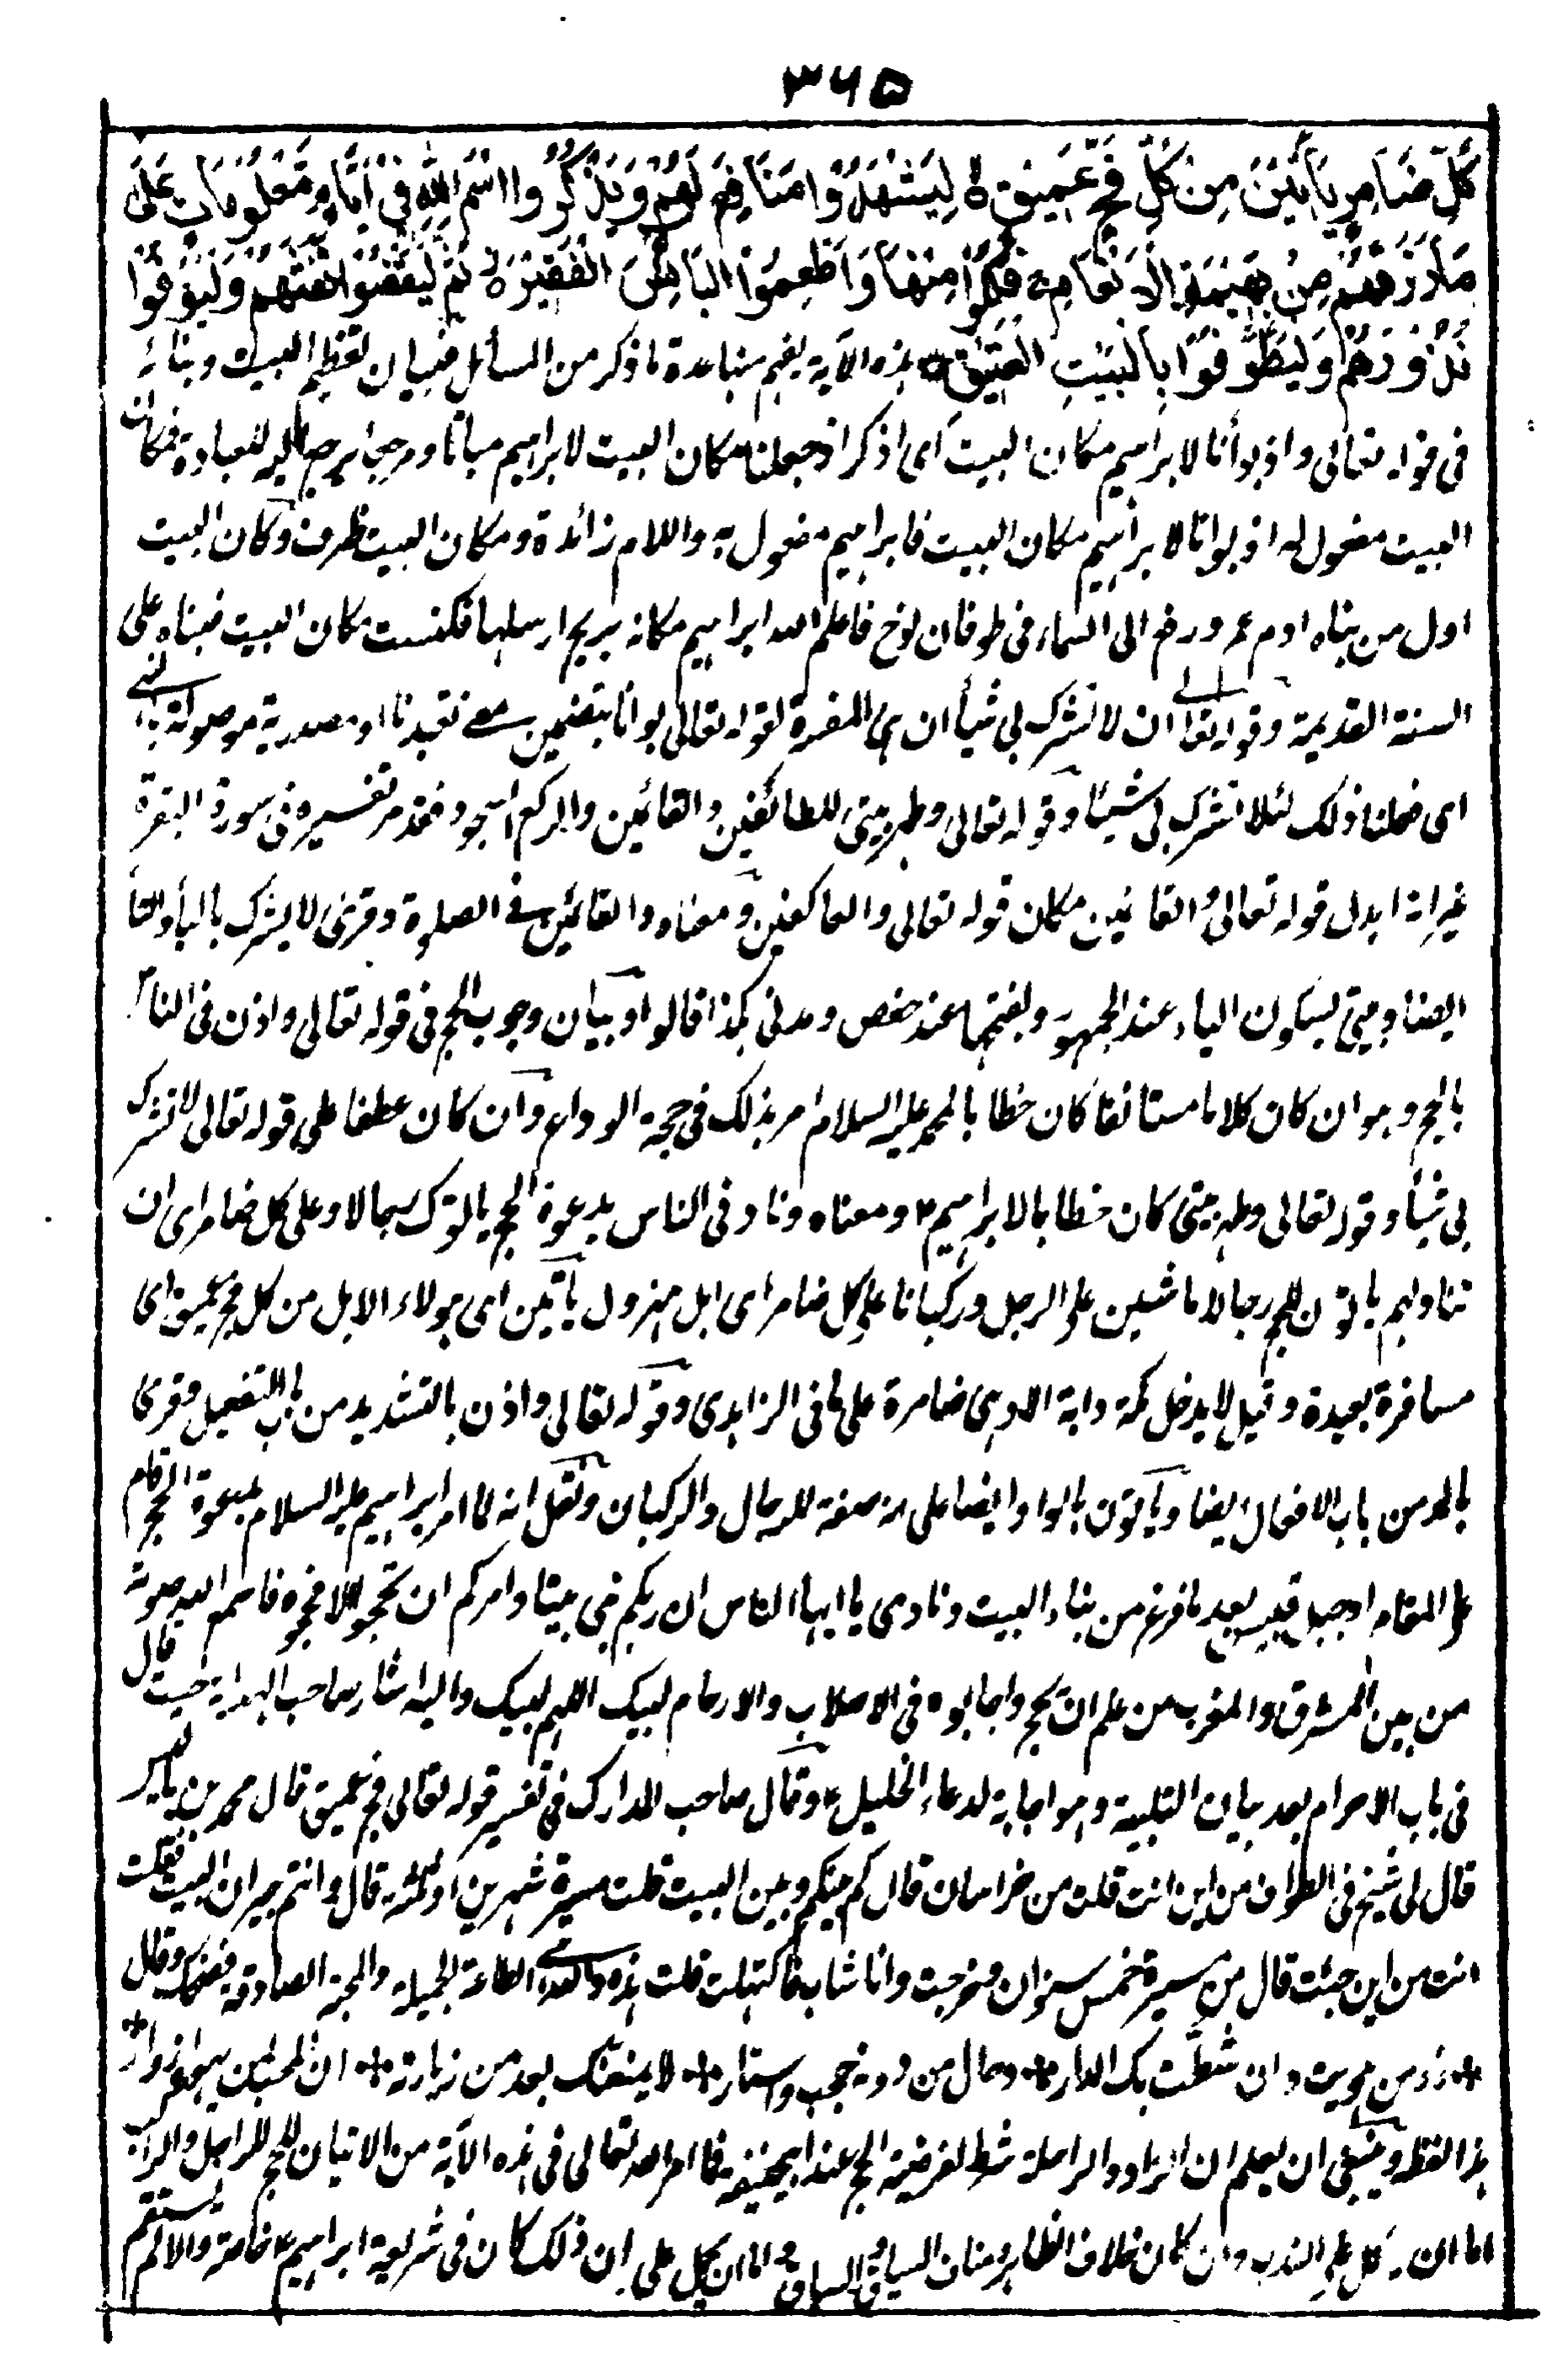 ٣٦٥
كُلِّ ضَامِرٍ يَأْتِيْنَ مِنْ كُلِّ فَجٍّ عَمِيْقٍ ۝ لِيَشْهَدُوْا مَنَافِعَ لَهُمْ وَيَذْكُرُوا اسْمَ اللّٰهِ فِيْ اَيَّامٍ مَّعْلُوْمَاتٍ عَلٰى
مَا رَزَقَهُمْ مِنْ بَهِيْمَةِ الْاَنْعَامِ ۚ فَكُلُوْا مِنْهَا وَاَطْعِمُوا الْبَائِسَ الْفَقِيْرَ ۝ ثُمَّ لْيَقْضُوْا تَفَثَهُمْ وَلْيُوْفُوْا
نُذُوْرَهُمْ وَلْيَطَّوَّفُوْا بِالْبَيْتِ الْعَتِيْقِ ۝ هذه الآية يفهم منها عدة ما ذكر من المسائل فبيان تعظيم البيت وبنائه
فى قوله تعالى واذ بوأنا لابراهيم مكان البيت اى اذكر اذ جعلنا مكان البيت لابراهيم مباءا ومرجعا يرجع اليه للعبادة فمكان
البيت مفعول له اذ بوانا لابراهيم مكان البيت فابراهيم مفعول به واللام زائدة ومكان البيت ظرف وكان البيت
اول من بناه ادم عم ورفع الى السماء فى طوفان نوح فاعلم الله ابراهيم مكانه بريح ارسلها فكنست مكان البيت فبناه على
السنة القديمة وقوله تعالى ان لا تشرك بى شيأ ان هى المفسرة لقوله تعالى بوانا بتضمين معنى تعبدنا او مصدرية موصولة بالنهى
اى فعلنا ذلك لئلا تشرك بى شيئا وقوله تعالى وطهر بيتى للطائفين والقائمين والركع السجود فقد مر تفسيره فى سورة البقرة
غير انه ابدل قوله تعالى والقائمين مكان قوله تعالى والعاكفين ومعناه والقائمين فى الصلوة وقرئ لا يشرك بالياء والتاء
ايضا وبيتى بسكون الياء عند الجمهور وبفتحها عند حفص ومدنى هكذا قالوا وبيان وجوب الحج فى قوله تعالى واذن فى الناس
بالحج وهو ان كان كلاما مستانفا كان خطابا لمحمد عليه السلام امر بذلك فى حجة الوداع وان كان عطفا على قوله تعالى لا تشرك
بى شيأ وقوله تعالى وطهر بيتى كان خطابا لابراهيم ۴ ومعناه وناد فى الناس بدعوة الحج ياتوك رجالا وعلى كل ضامر اى ان
تناديهم ياتون للحج رجالا ماشين على الرجل وركبانا على كل ضامر اى ابل مهزول ياتين اى هولاء الابل من كل فج عميق اى
مسافرة بعيدة وقيل لا يدخل مكة دابة الا وهى ضامرة على ما فى الزاهدى وقوله تعالى واذن بالتشديد من باب التفعيل وقرئ
بالمد من باب الافعال ايضا وياتون بالواو ايضا على انه صفة للرجال والركبان ونقل انه لما امر ابراهيم عليه السلام بدعوة الحج قام
على المقام او جبل قبيس بعد ما فرغ من بناء البيت ونادى يا ايها الناس ان ربكم بنى بيتا وامركم ان تحجوا الا فحجوه فاسمع الله صوته
من بين المشرق والمغرب من علم ان يحج واجابوه فى الاصلاب والارحام لبيك اللهم لبيك واليه اشار صاحب الهداية حيث قال
فى باب الاحرام بعد بيان التلبية وهو اجابة لدعاء الخليل ۴ وقال صاحب المدارك فى تفسير قوله تعالى فج عميق قال محمد بن ياسر
قال لى شيخ فى الطواف من اين انت قلت من خراسان قال كم بينكم وبين البيت قلت مسيرة شهرين او ثلثة قال وانتم جيران البيت فقلت
انت من اين جئت قال من مسيرة خمس سنوات وخرجت وانا شاب فاكتهلت قلت هذه والله الطاعة الجميلة والمحبة الصادقة فضحك وقال
* زر من هويت وان شطت بك الدار * وحال من دونه حجب واستار * لا يمنعنك بعد من زيارته * ان المحب لمن يهواه زوار *
هذا لفظه وينبغى ان يعلم ان الزاد والراحلة شرط لفرضية الحج عند ابى حنيفة فما امر الله تعالى فى هذه الآية من الاتيان للحج للراجل والراكب
اما ان يحمل على الندب وان كان خلاف الظاهر ومناف السياق والسباق واما ان يحمل على ان ذلك كان فى شريعة ابراهيم ۴ خاصة والا لم يستقم